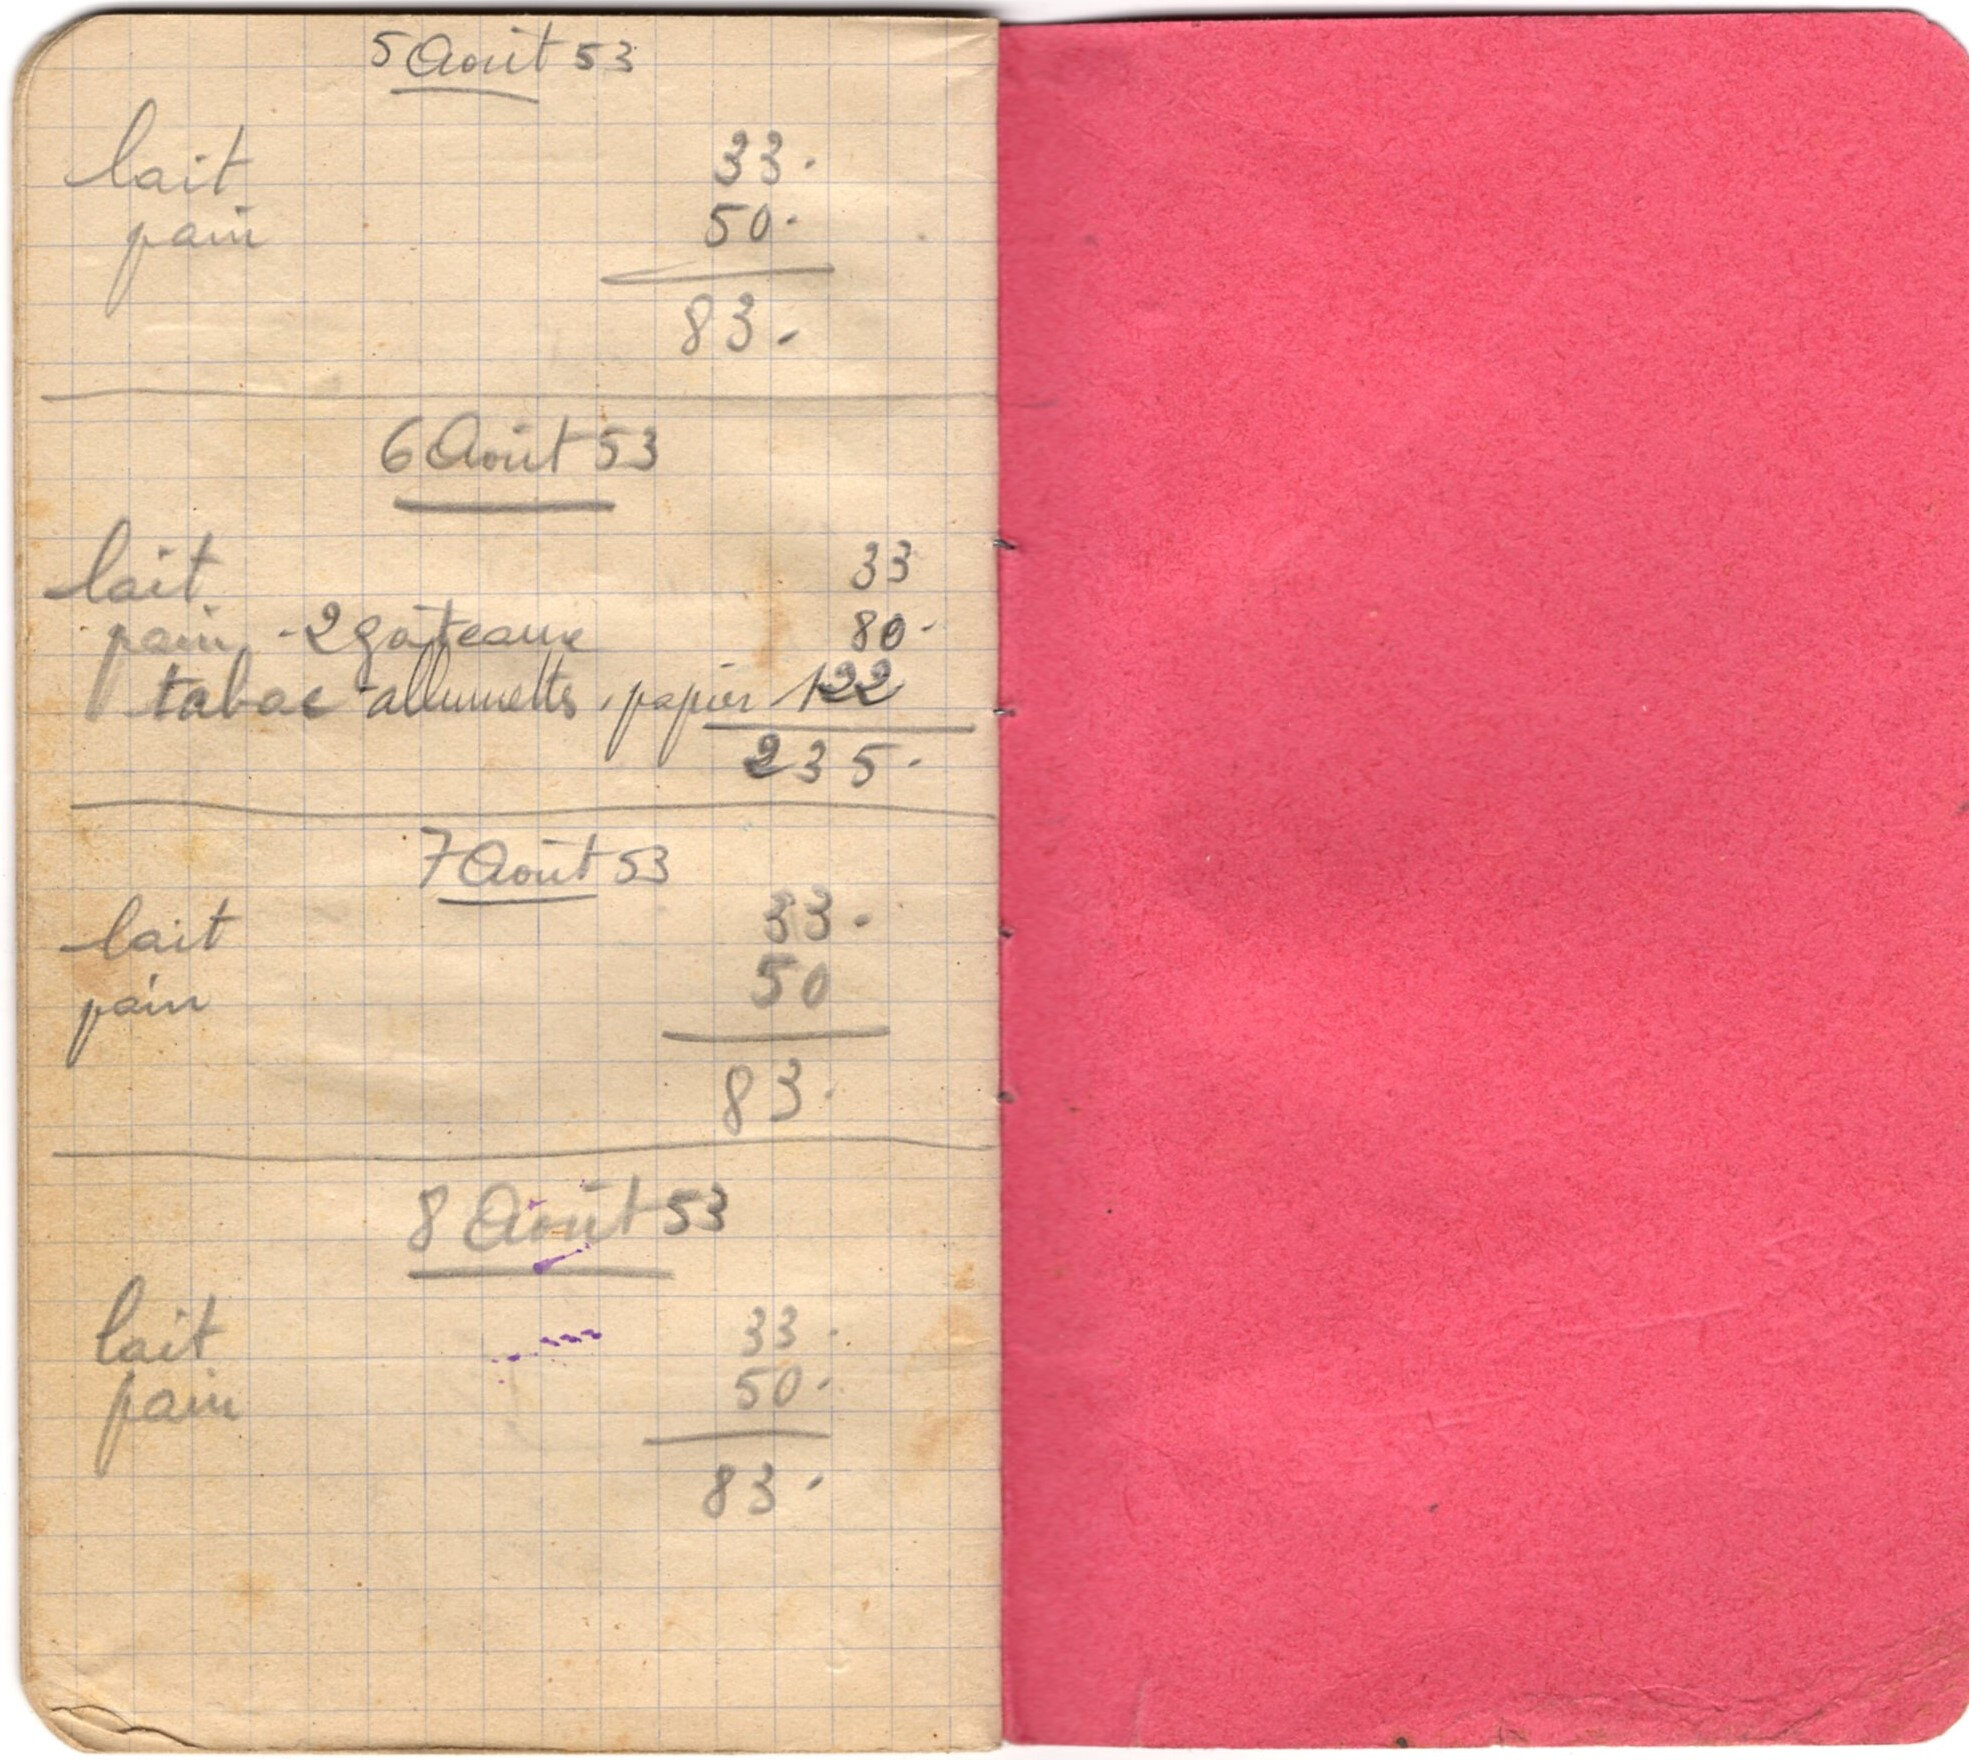 5 Août 53
lait 33.
pain 50.
83.
6 Août 53
lait 33
pain - 2 gâteaux 80.
tabac - allumettes, papier 122
235.
7 Août 53
lait 33.
pain 50
83.
8 Août 53
lait 33.
pain 50.
83.